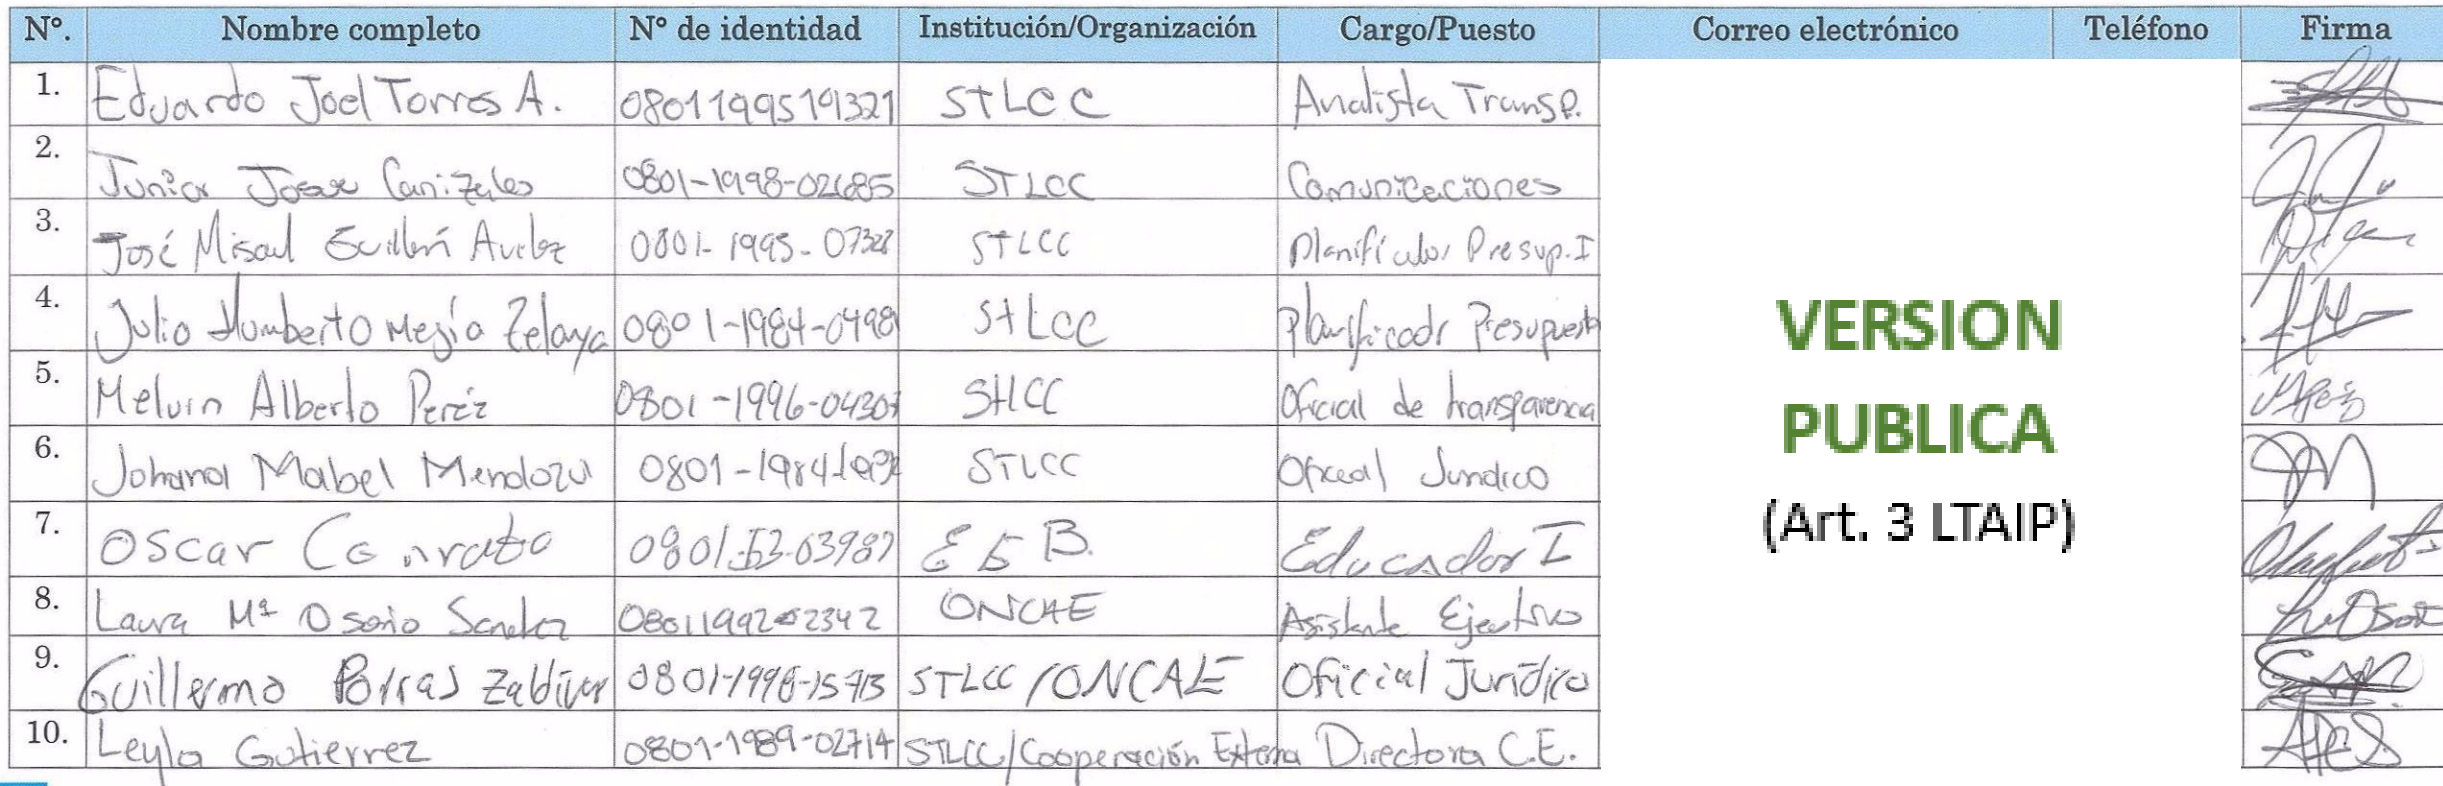 N°. Nombre completo N° de identidad Institución/Organización Cargo/Puesto Correo electrónico Teléfono Firma
1. Eduardo Joel Torres A. 0801199519321 STLCC Analista Transp.
2. Junior Josue Canizales 0801-1998-02685 STLCC Comunicaciones
3. José Misael Guillén Avilez 0801-1995-07328 STLCC Planificador Presup. I
4. Julio Humberto Mejía Zelaya 0801-1984-0498 STLCC Planificador Presupuesto
5. Melvin Alberto Peréz 0801-1996-04307 STLCC Oficial de transparencia
6. Johana Mabel Mendoza 0801-1984 STLCC Oficial Juridico
7. Oscar 0801 03987 E B. Educador I
8. Laura Mª Osorio Sanchez 0801199202342 ONCAE Asistente Ejecutivo
9. Guillermo Porras Zaldivar 0801-1998-15713 STLCC/ONCAE Oficial Jurídico
10. Leyla Gutierrez 0801-1989-02714 STLCC/Cooperación Externa Directora C.E.
VERSION
PUBLICA
(Art. 3 LTAIP)